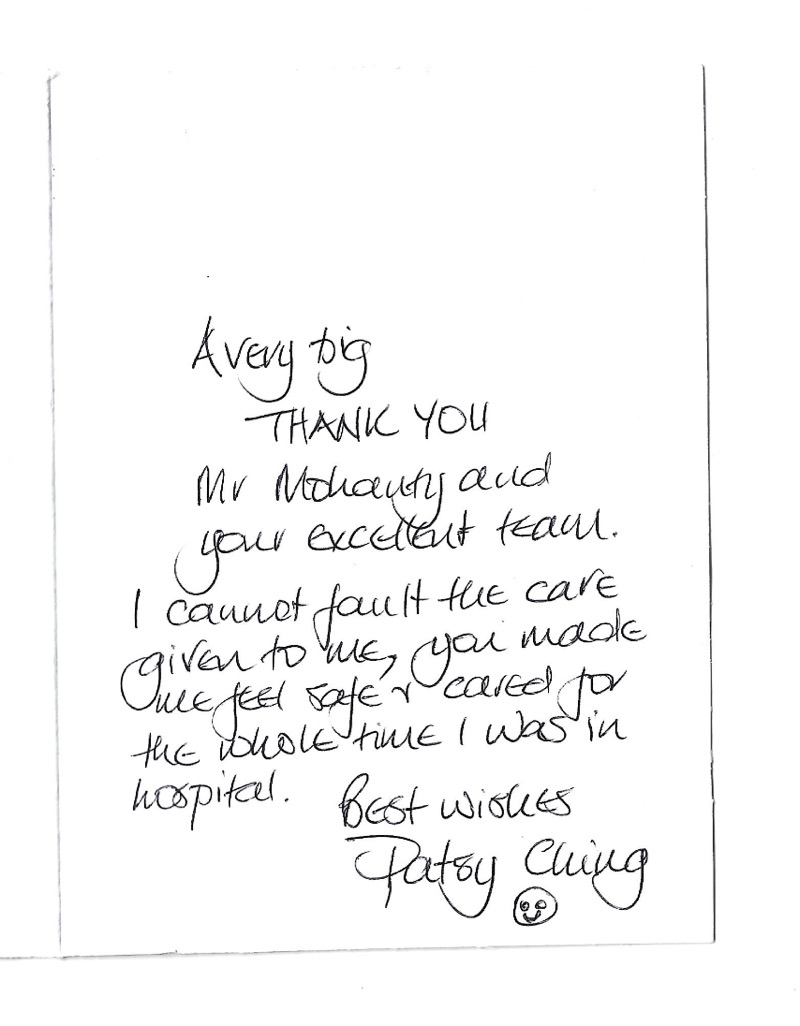 A very big
THANK YOU
Mr Mohanty and
your excellent team.
I cannot fault the care
given to me, you made
me feel safe & cared for
the whole time I was in
hospital.
Best wishes
Patsy Ching